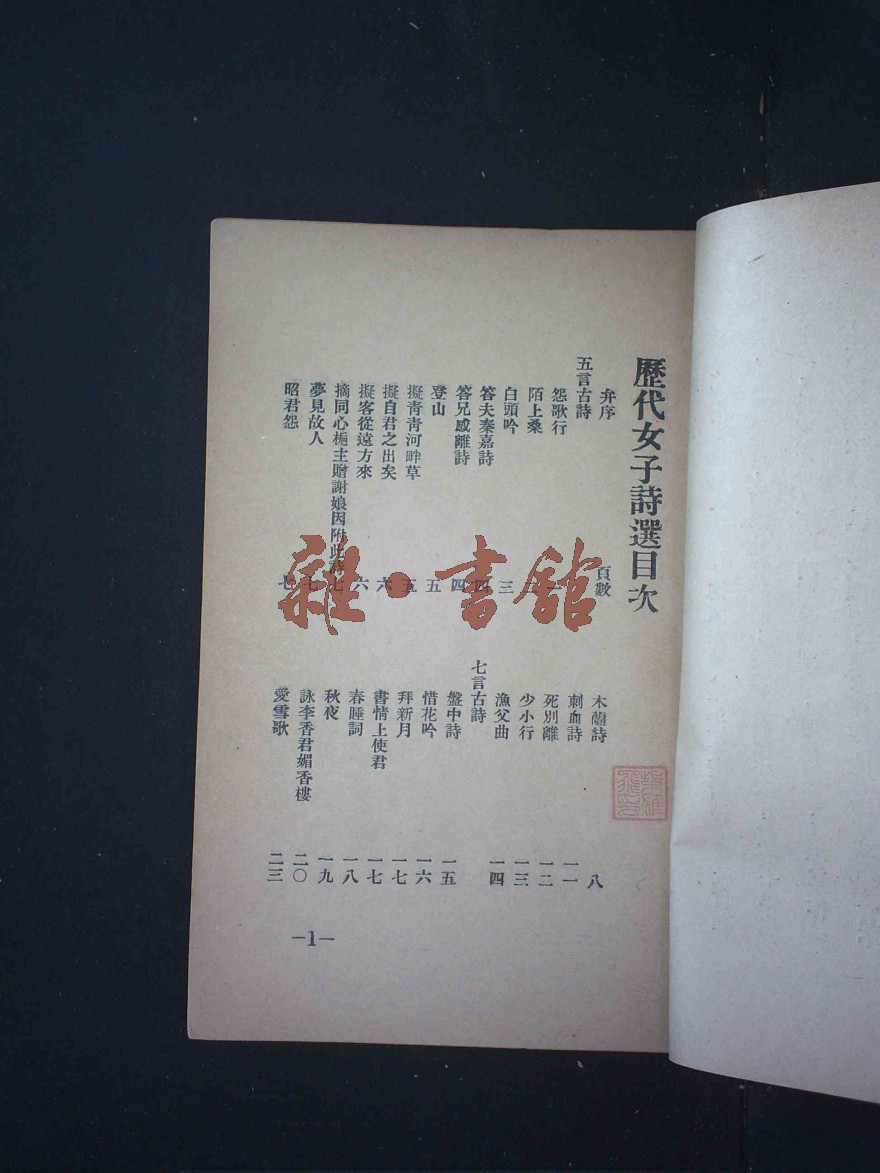 歷代女子詩選目次
頁數
弁序
五言古詩
怨歌行
陌上桑
白頭吟 三
答夫秦嘉詩 四
答兄感離詩 四
登山 五
擬青青河畔草 五
擬自君之出矣 六
擬客從遠方來 六
摘同心梔主贈謝娘因附此詩 七
夢見故人 七
昭君怨 七
木蘭詩 八
刺血詩 一一
死別離 一二
少小行 一三
漁父曲 一四
七言古詩
盤中詩 一五
惜花吟 一六
拜新月 一七
書情上使君 一七
春睡詞 一八
秋夜 一九
詠李香君媚香樓 二〇
愛雪歌 二三
—1—
雜·書館